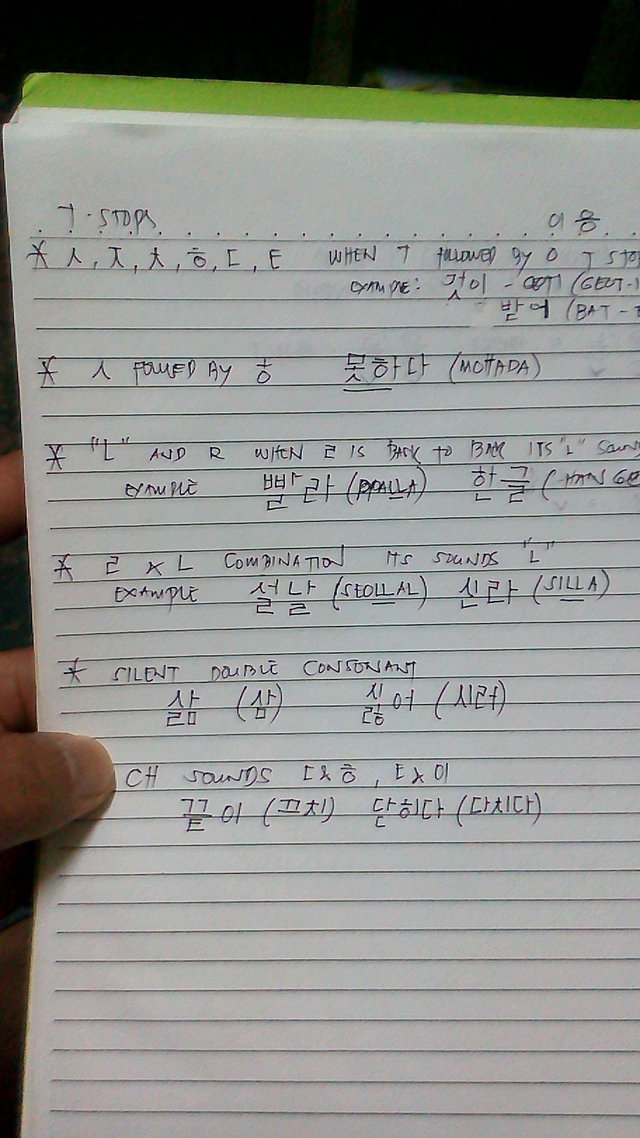 7 · STOPS 이응
* ㅅ, ㅈ, ㅊ, ㅎ, ㄷ, ㅌ WHEN 7 FOLLOWED BY O 7 STOP
EXAMPLE: 것이 - (GEOT-
받어 (BAT -
* ㅅ FOLLED BY ㅎ 못하다 (MOTTADA)
* "L" AND R WHEN ㄹ IS BACK TO BACK ITS "L" SOUN
EXAMPLE 빨라 (PPALLA) 한글 (HAN GE
* ㄹ & L COMBINATION ITS SOUNDS "L"
EXAMPLE 설날 (SEOLLAL) 신라 (SILLA)
* SILENT DOUBLE CONSONANT
삶 (삼) 싫어 (시러)
CH SOUNDS ㄷ&ㅎ, ㅌ&이
끝이 (끄치) 닫히다 (다치다)